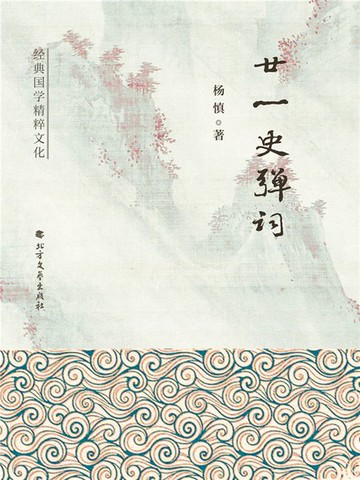 廿一史弹词
杨慎 ◎ 著
经典国学精粹文化
北方文艺出版社